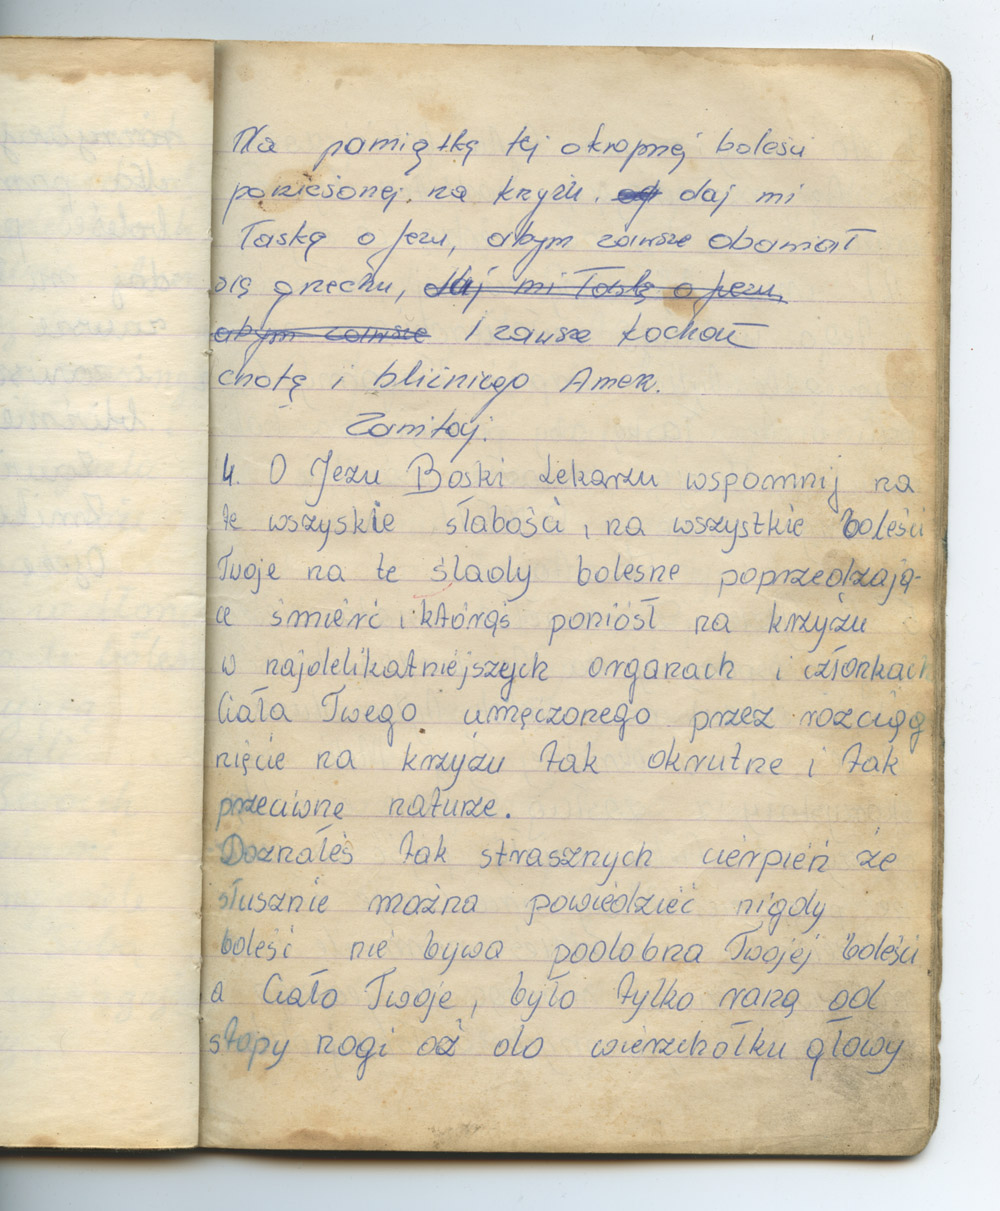 Na pamiątkę tej okropnej boleści
poniesionej. na krzyżu. od daj mi
łaskę o Jezu, abym zawsze obawiał
się grzechu, daj mi łaskę o jezu,
abym zawsze I zawsze kochał
cnotę i bliźniego Amen.
Zamiłoj.
4. O Jezu Boski Lekarzu wspomnij na
te wszyskie słabości, na wszystkie boleści
Twoje na te ślady bolesne poprzedzają-
ce śmierć i którąś poniósł na krzyżu
w najdelikatniejszych organach i członkach
Ciała Twego umęczonego przez rozciąg
nięcie na krzyżu tak okrutne i tak
przeciwne naturze.
Doznałeś tak strasznych cierpień że
słusznie można powiedzieć nigdy
boleść nie bywa podobna Twojej boleści
a Ciało Twoje, było tylko raną od
stopy nogi aż do wierzchołku głowy